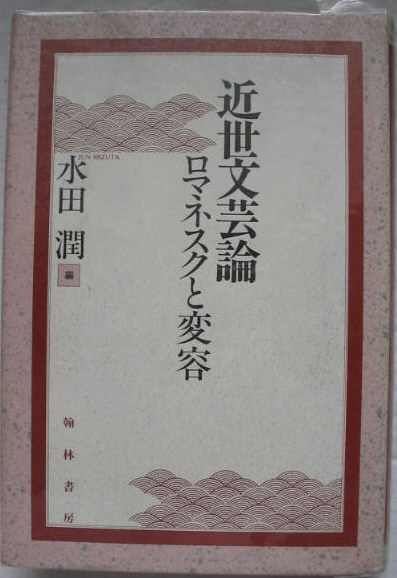 近世文芸論
ロマネスクと変容
JUN MIZUTA
水田 潤
編
翰林書房